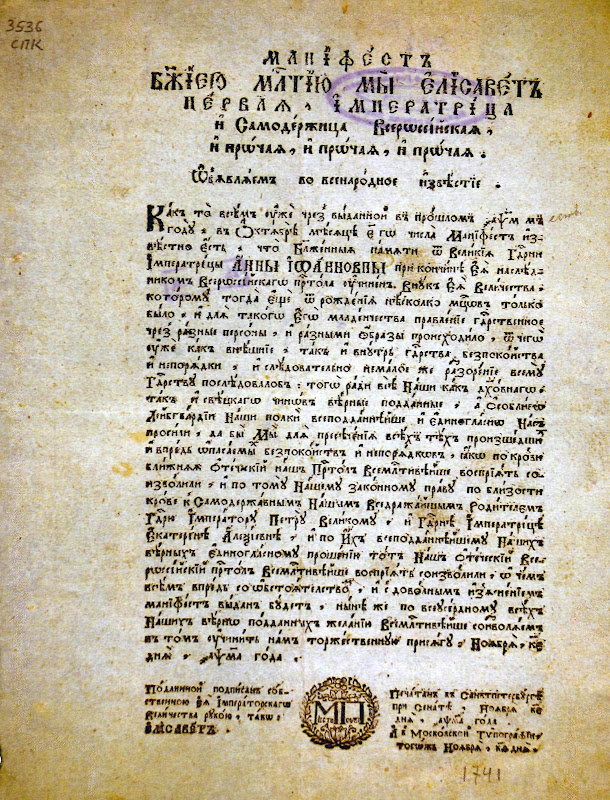 3536
СПК
МАНІФЕСТЪ
БЖ҃ІЕЮ МЛ҃ТІЮ МЫ ЕЛІСАВЕТЪ
ПЕРВАЯ, ІМПЕРАТРІЦА
И Самодержица Всероссійская,
и прѡчая, и прѡчая, и прѡчая.
Ѡб̾являемъ во всенародное извѣстіе.
Какъ то всѣмъ уже чрез̾ выданной въ прошломъ ҂аѱм҃ мъ
году, въ Октѣбрѣ мѣсяцѣ е҃ гѡ числа Маніфестъ из-
вѣстно есть, что блаженныя памяти ѿ Великія Гдр҃ни
Імператрицы АННЫ ІѠАННОВНЫ при кончинѣ Ея наслѣд-
никомъ Всероссійскагѡ пр҃тола учиненъ Внукъ Ея Величества,
которому тогда еще ѿ рожденія нѣсколко мц҃овъ толькѡ
было, и для такогѡ Егѡ младенчества правленіе гдр҃ственное
чрез̾ разные персоны, и разными ѡбразы происходило, ѿ чегѡ
уже какъ внѣшніе, такъ и внутрь гдр҃ства безпокойства
и непорядки, и слѣдовательно немалое же разореніе всему
Гдр҃ству послѣдовалобъ: тогѡ ради всѣ Наши какъ дх҃овнагѡ,
такъ и свѣцкагѡ чиновъ вѣрные подданные, а ѡсобливѡ
Лейбгвардіи Наши полки всеподданнѣйше и единогласнѡ Насъ
просили, да бы Мы для пресѣченія всѣхъ тѣхъ произшедшихъ
и впредь ѡпасаемыхъ безпокойствъ и непорядковъ, якѡ по крови
ближняя Ѡтеческій нашъ Пр҃толъ Всемл҃тивѣйше воспріять со-
изволили, и по тому Нашему законному праву по близости
крове къ Самодержавнымъ Нашимъ Вседражайшымъ Родителемъ
Гдр҃ю Імператору Петру Великому, и Гдр҃нѣ Імператрицѣ
Екатеринѣ Алеѯіевнѣ, и по Ихъ всеподданнѣйшему Нашихъ
вѣрныхъ единогласному прошенію тотъ Нашъ Ѡтеческій Все-
россійскій пр҃толъ Всемл҃тивѣйше воспріять соизволили, ѡ чемъ
всѣмъ впредь со ѡбстоятельствѡ, и с̾ довольнымъ из̾ясненіемъ
маніфестъ выданъ будетъ, нынѣ же по всеусердному всѣхъ
Нашихъ вѣрнѡ подданныхъ желанію Всемл҃тивѣйше соизволяемъ
въ томъ учинить намъ торжественную присягу, Ноября, ке҃
дня, ҂аѱма҃ года.
Подлинной подписанъ соб-
ственною Ея Імператорскагѡ
Величества рукою, такѡ,
ЕЛІСАВЕТЪ.
МП
мѣсто
Печатанъ въ Санктпетербургѣ
при Сенатѣ, Ноября ке҃
дня, ҂аѱма҃ года.
А въ Московской Тупографіи
тогожъ Ноября, дня.
1741